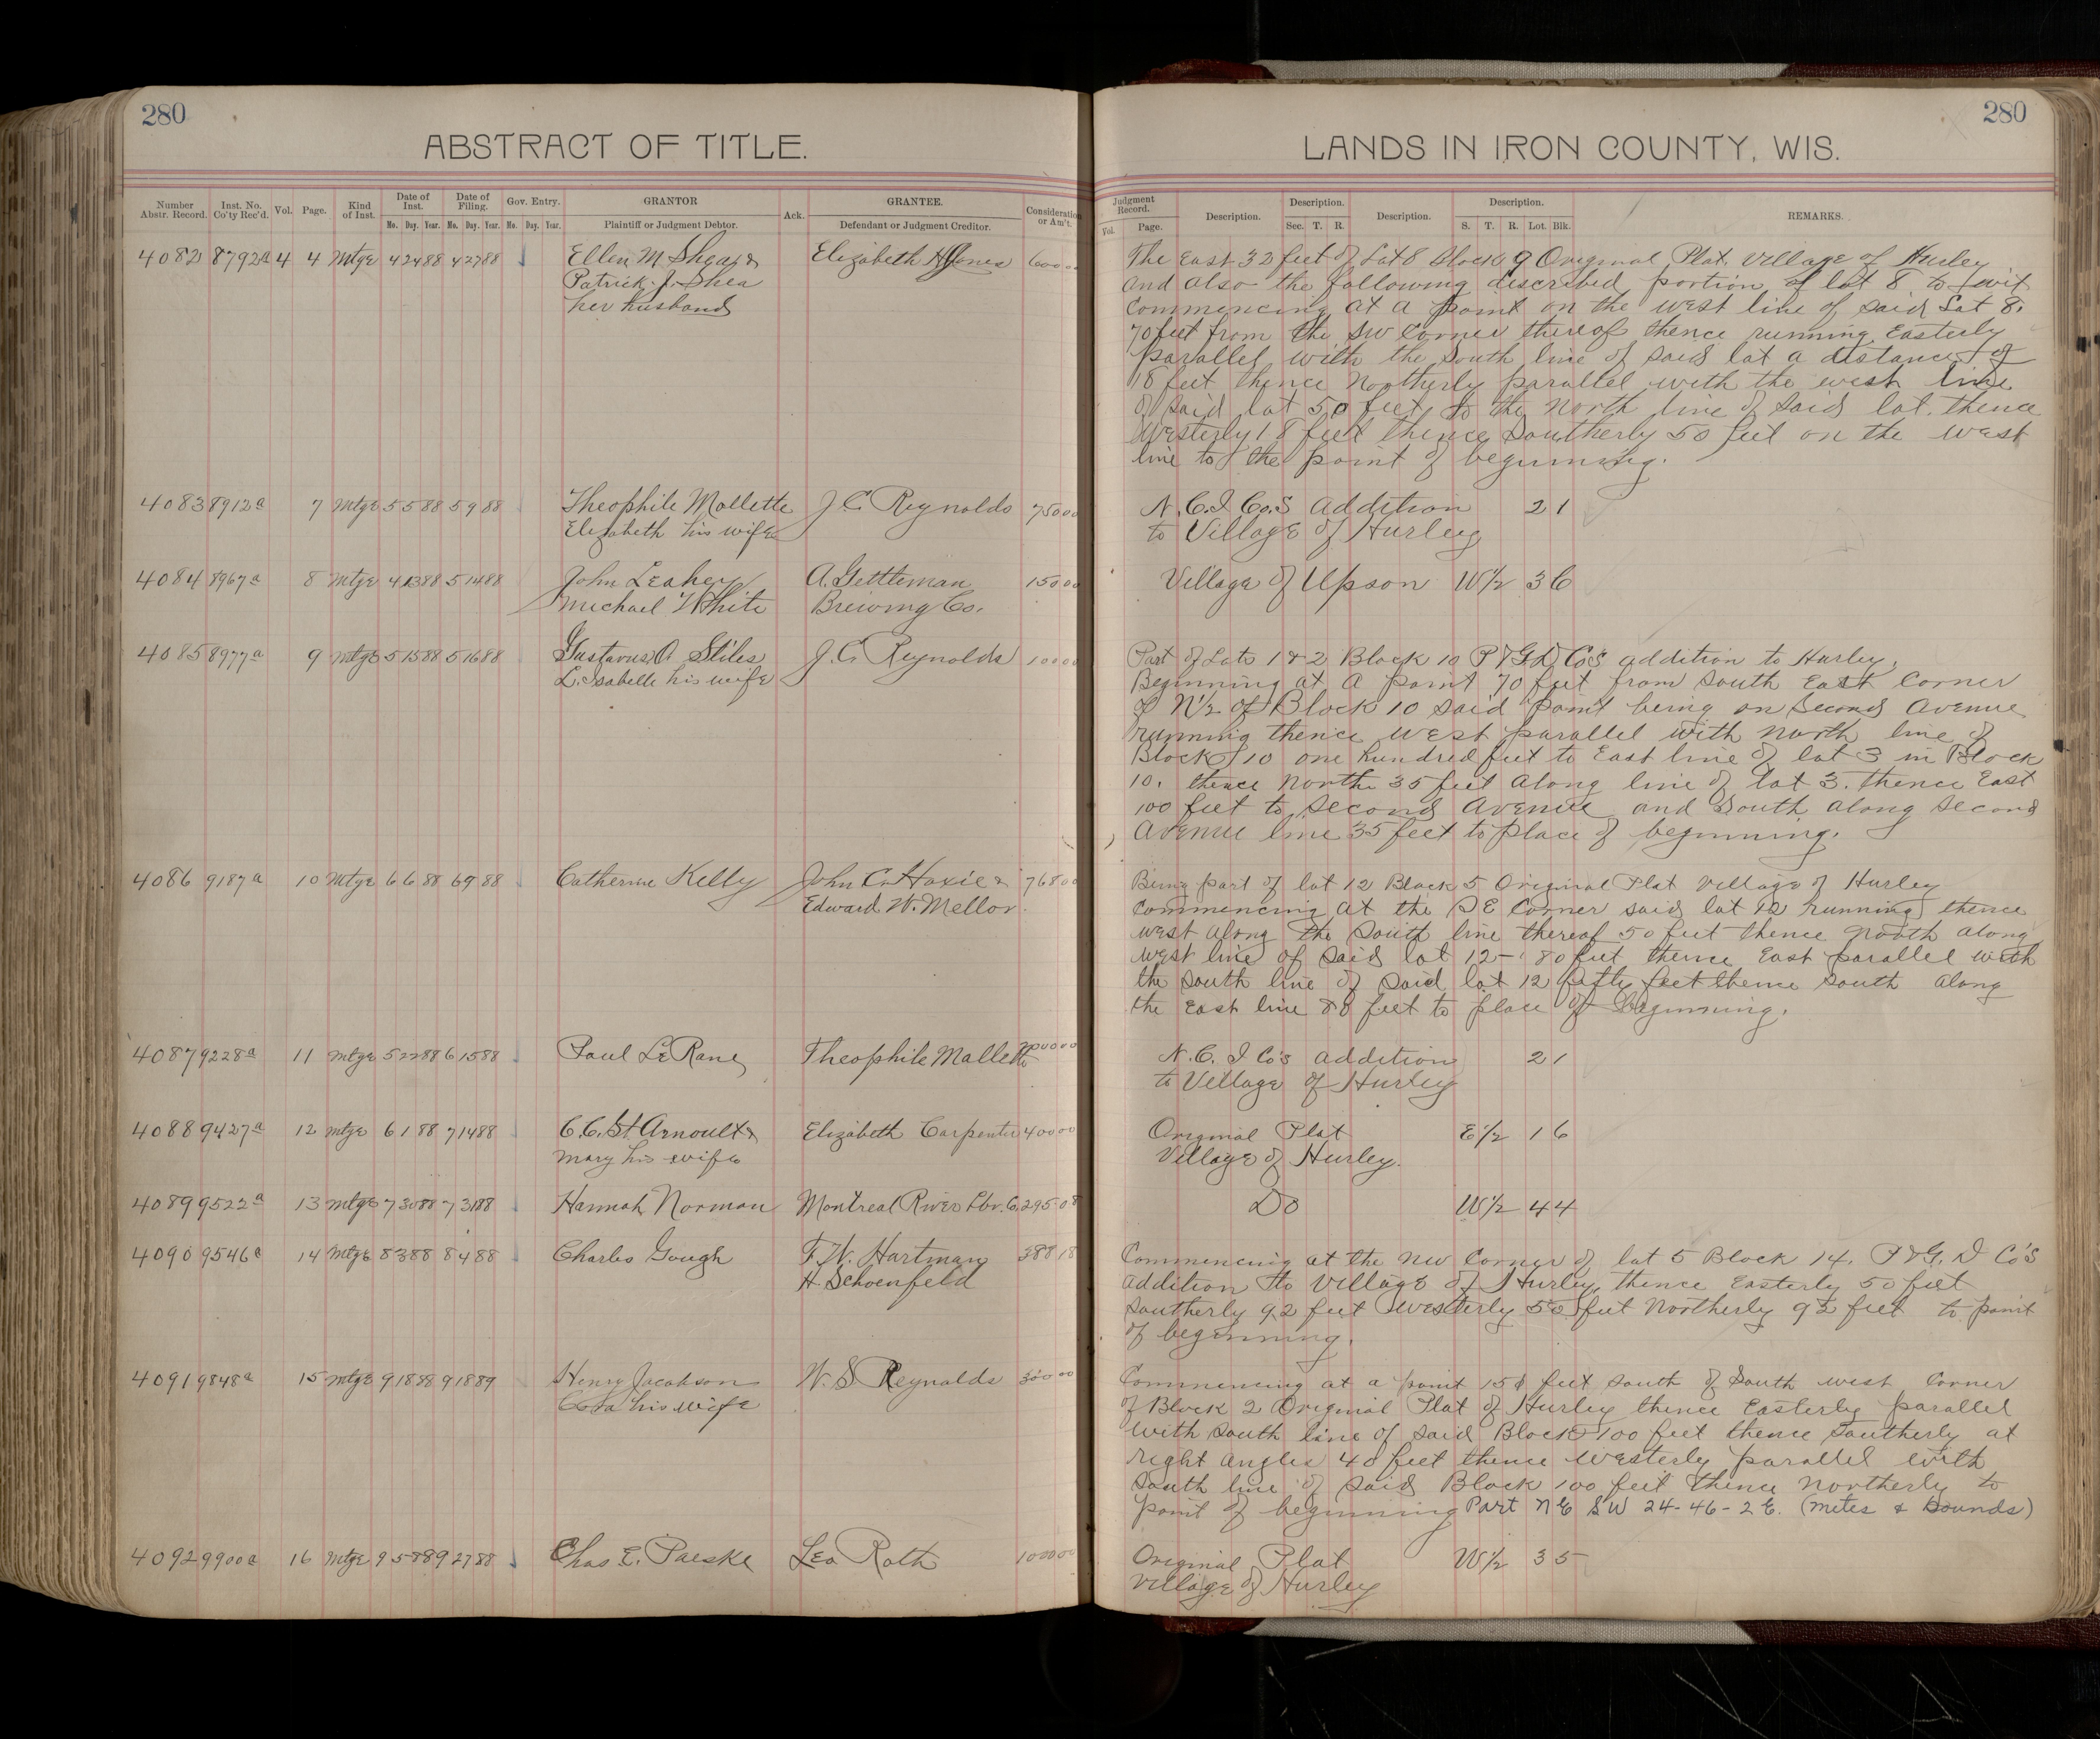 280
ABSTRACT OF TITLE.
Number Abstr. Record. Inst. No. Co'ty Rec'd. Vol. Page. Kind of Inst. Date of Inst. Mo. Day. Year. Date of Filing. Mo. Day. Year. Gov. Entry. Mo. Day. Year. GRANTOR Plaintiff or Judgment Debtor. Ack. GRANTEE. Defendant or Judgment Creditor. Consideration or Am't.
4082 8792a 4 4 Mtge 4 24 88 4 27 88 Ellen M Shea & Elizabeth H Jones 600 00
Patrick J. Shea
her husband
4083 8912a 7 Mtge 5 5 88 5 9 88 Theophile Mallette J. C. Reynolds 750 00
Elizabeth his wife
4084 8967a 8 Mtge 4 13 88 5 14 88 John Leahey A. Gettleman 150 00
Michael White Breiwing Co.
4085 8977a 9 Mtge 5 15 88 5 16 88 Gustavus A. Stiles J. C. Reynolds 100 00
L. Isabelle his wife
4086 9187a 10 Mtge 6 6 88 6 9 88 Catherine Kelly John C. Hoxie & 768 00
Edward W. Mellor
4087 9228a 11 Mtge 5 22 88 6 15 88 Paul LeRane Theophile Mallette 2000 00
4088 9427a 12 Mtge 6 1 88 7 14 88 C. C. St Arnoult & Elizabeth Carpenter 400 00
Mary his wife
4089 9522a 13 Mtge 7 30 88 7 31 88 Hannah Norman Montreal River Lbr. Co. 295 08
4090 9546a 14 Mtge 8 3 88 8 4 88 Charles Gough F. W. Hartman 388 18
H. Schoenfeld
4091 9848a 15 Mtge 9 18 88 9 18 89 Henry Jacobson W. S. Reynolds 300 00
Cora his wife
4092 9900a 16 Mtge 9 5 88 9 27 88 Chas E. Paeske Leo Roth 1000 00
280
LANDS IN IRON COUNTY, WIS.
Judgment Record. Vol. Page. Description. Description. Sec. T. R. Description. Description. S. T. R. Lot. Blk. REMARKS.
The East 32 feet of Lot 8 Block 9 Original Plat Village of Hurley
and also the following described portion of lot 8 to wit
Commencing at a point on the west line of said Lot 8.
70 feet from the SW Corner thereof thence running Easterly
parallel with the South line of said lot a distance of
18 feet thence Northerly parallel with the west line
of said lot 50 feet to the North line of said lot. thence
Westerly 18 feet thence Southerly 50 feet on the west
line to the point of beginning.
N. C. I Co.s Addition 2 1
to Village of Hurley
Village of Upson W½ 3 6
Part of Lots 1 & 2 Block 10 P & G D Co's addition to Hurley.
Beginning at a point 70 feet from South East Corner
of N½ of Block 10 said point being on Second Avenue
running thence west parallel with north line of
Block 10 one hundred feet to East line of lot 3 in Block
10. thence North 35 feet along line of lot 3. thence East
100 feet to Second Avenue and South along Second
Avenue line 35 feet to place of beginning.
Being part of lot 12 Block 5 Original Plat Village of Hurley
Commencing at the SE Corner said lot 12 running thence
west along the South line thereof 50 feet thence north along
west line of said lot 12 - 80 feet thence East parallel with
the south line of said lot 12 fifty feet thence south along
the East line 80 feet to place of beginning.
N. C. I Co's addition 2 1
to Village of Hurley
Original Plat E½ 1 6
Village of Hurley.
Do W½ 4 4
Commencing at the NW Corner of lot 5 Block 14. P & G. D Co's
addition to Village of Hurley, thence Easterly 50 feet
Southerly 92 feet westerly 50 feet Northerly 92 feet to point
of beginning.
Commencing at a point 150 feet south of South west Corner
of Block 2 Original Plat of Hurley thence Easterly parallel
with South line of said Block 100 feet thence Southerly at
right angles 40 feet thence westerly parallel with
South line of said Block 100 feet thence Northerly to
point of beginning Part NE SW 24-46-2E. (metes & bounds)
Original Plat W½ 3 5
Village of Hurley